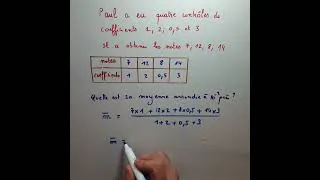 Paul a eu quatre contrôles de
coefficients 1, 2, 0,5 et 3
et a obtenu les notes 7, 12, 8, 14
notes 7 12 8 14
coefficients 1 2 0,5 3
Quelle est sa moyenne arrondie à 10⁻² près ?
m̅ = 7x1 + 12x2 + 8x0,5 + 14x3
1+2+0,5+3
m̅ =